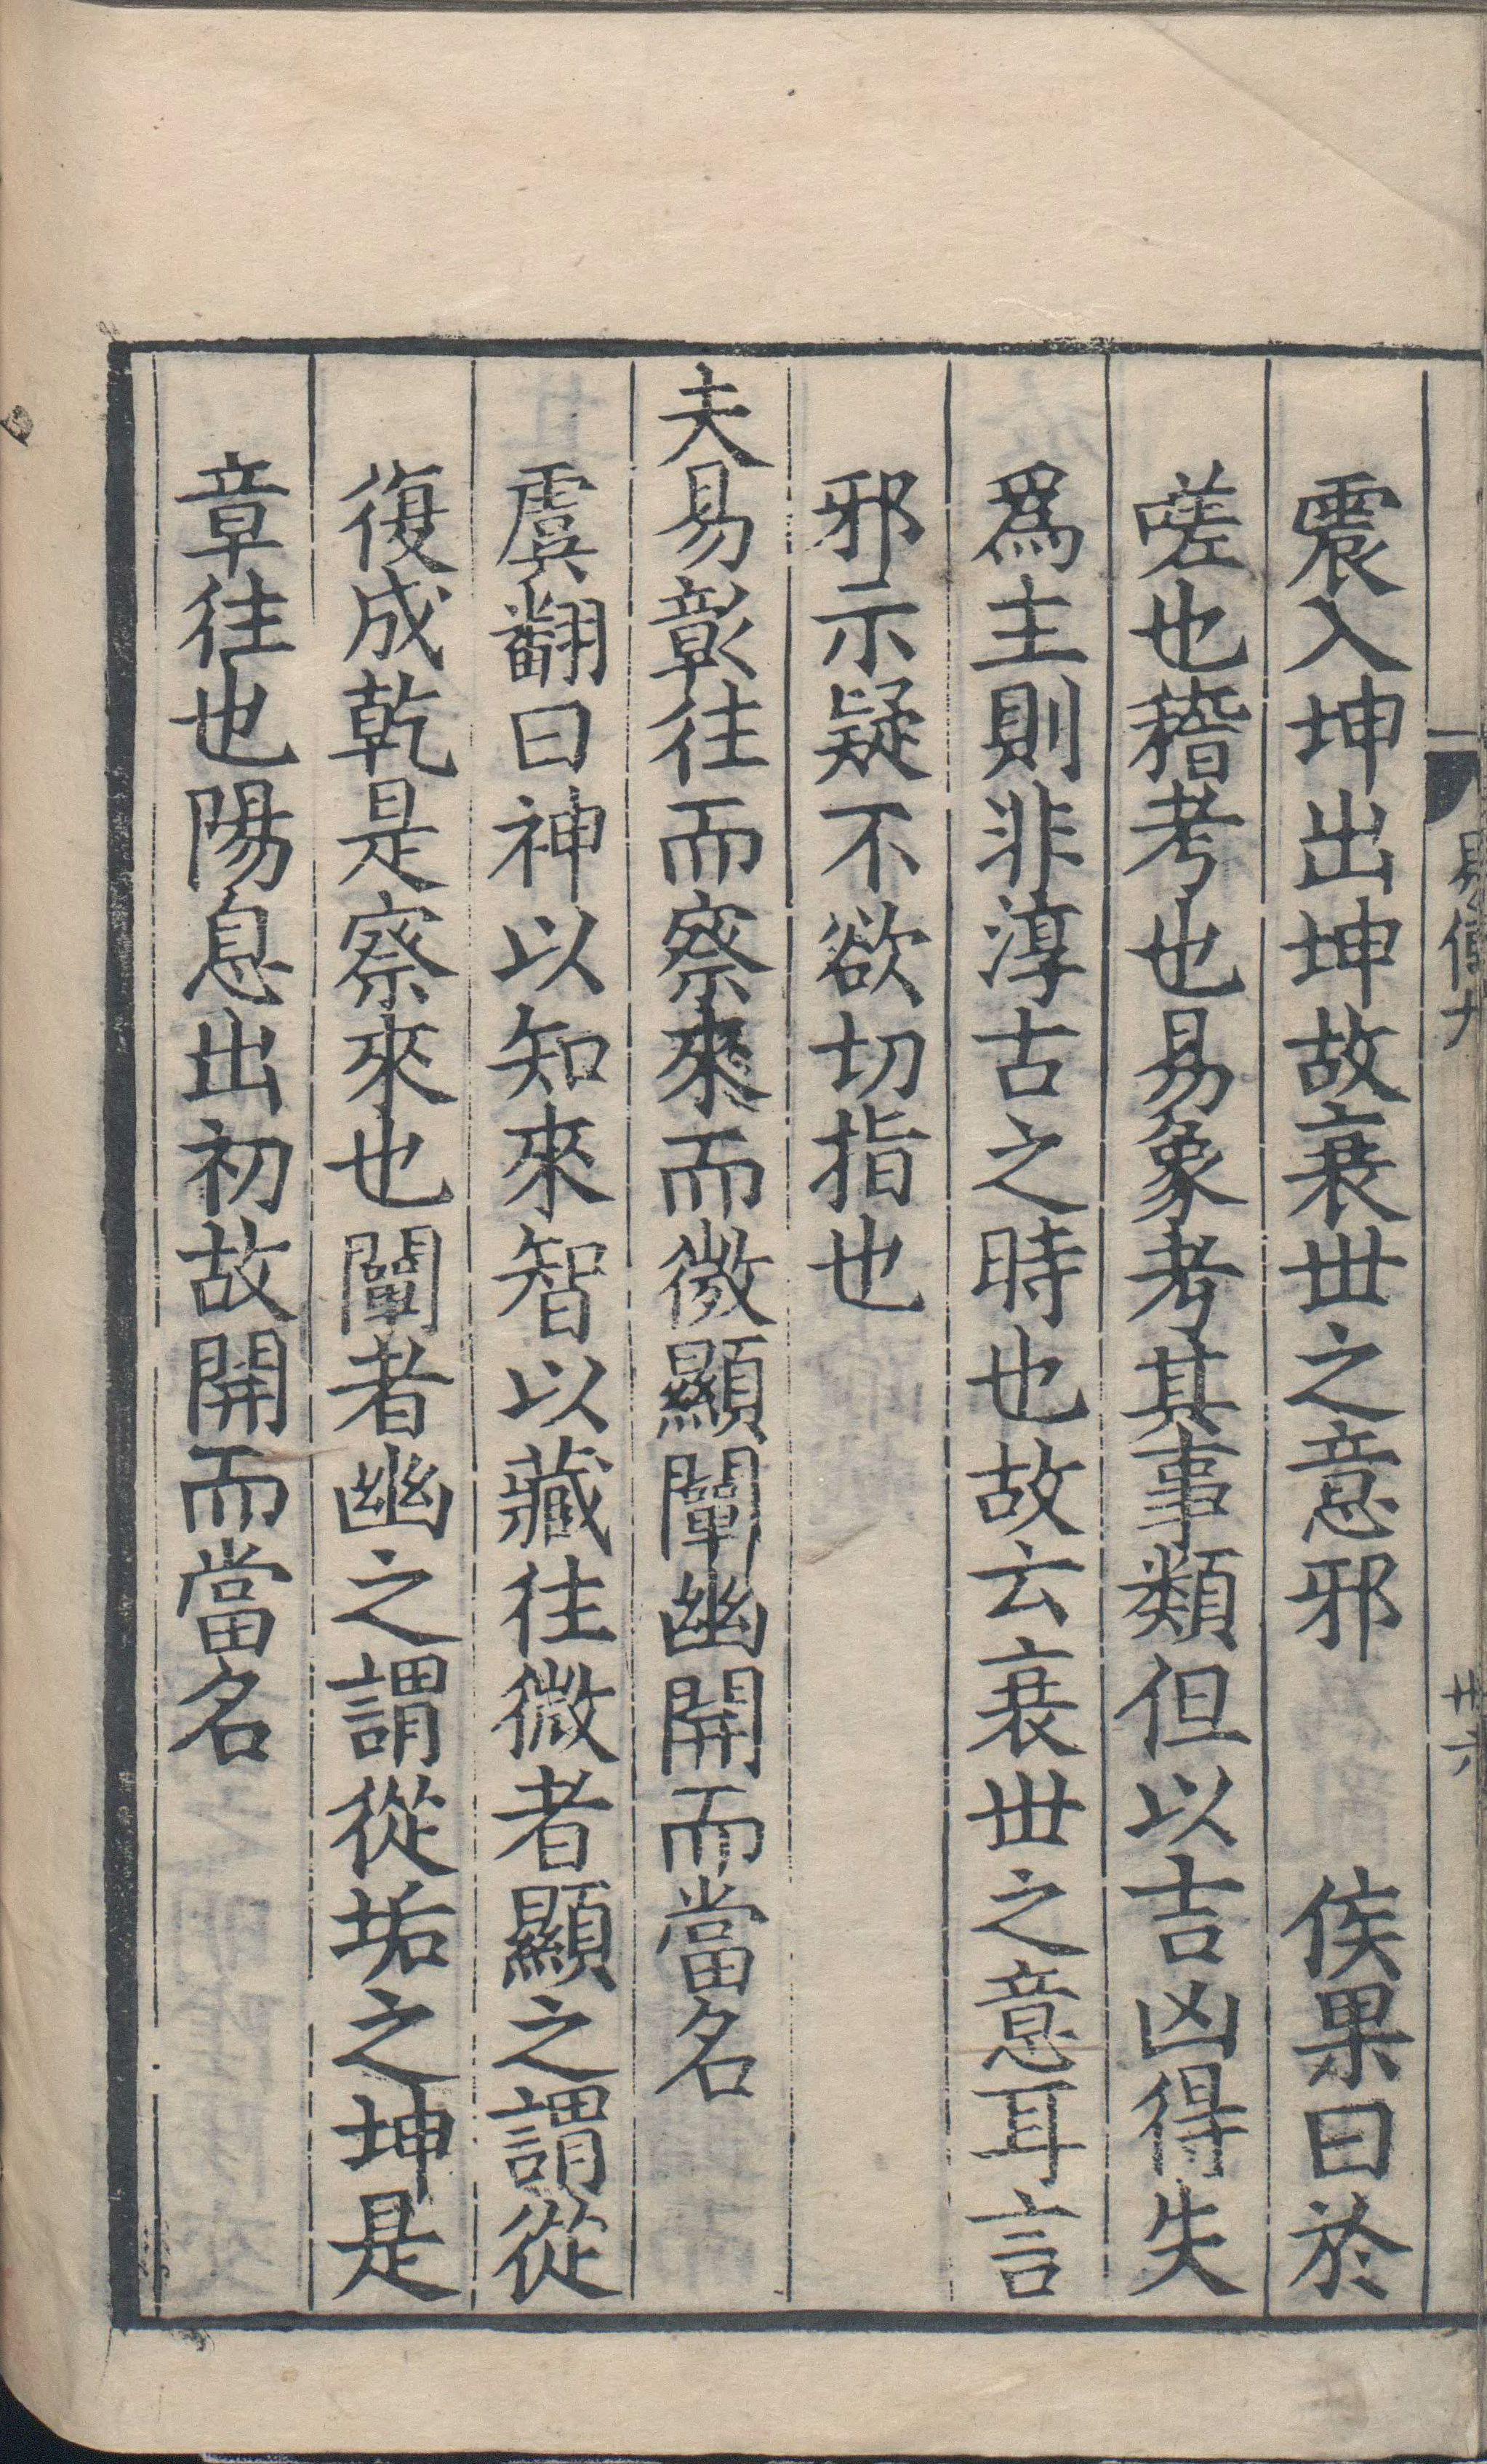 震入坤出坤故衰世之意邪　侯果曰於
嗟也稽考也易象考其事類但以吉凶得失
爲主則非淳古之時也故云衰世之意耳言
邪示疑不欲切指也
夫易彰往而察來而微顯闡幽開而當名
虞翻曰神以知來智以藏往微者顯之謂從
復成乾是察來也闡者幽之謂從垢之坤是
章往也陽息出初故開而當名